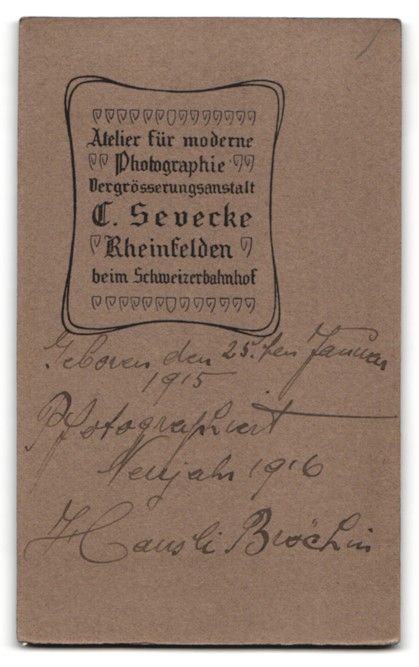 Atelier für moderne
Photographie
Vergrösserungsanstalt
C. Sevecke
Rheinfelden
beim Schweizerbahnhof
Geboren den 25.ten Januar
1915
Pfotographiert
Neujahr 1916
Hansli Bröchin